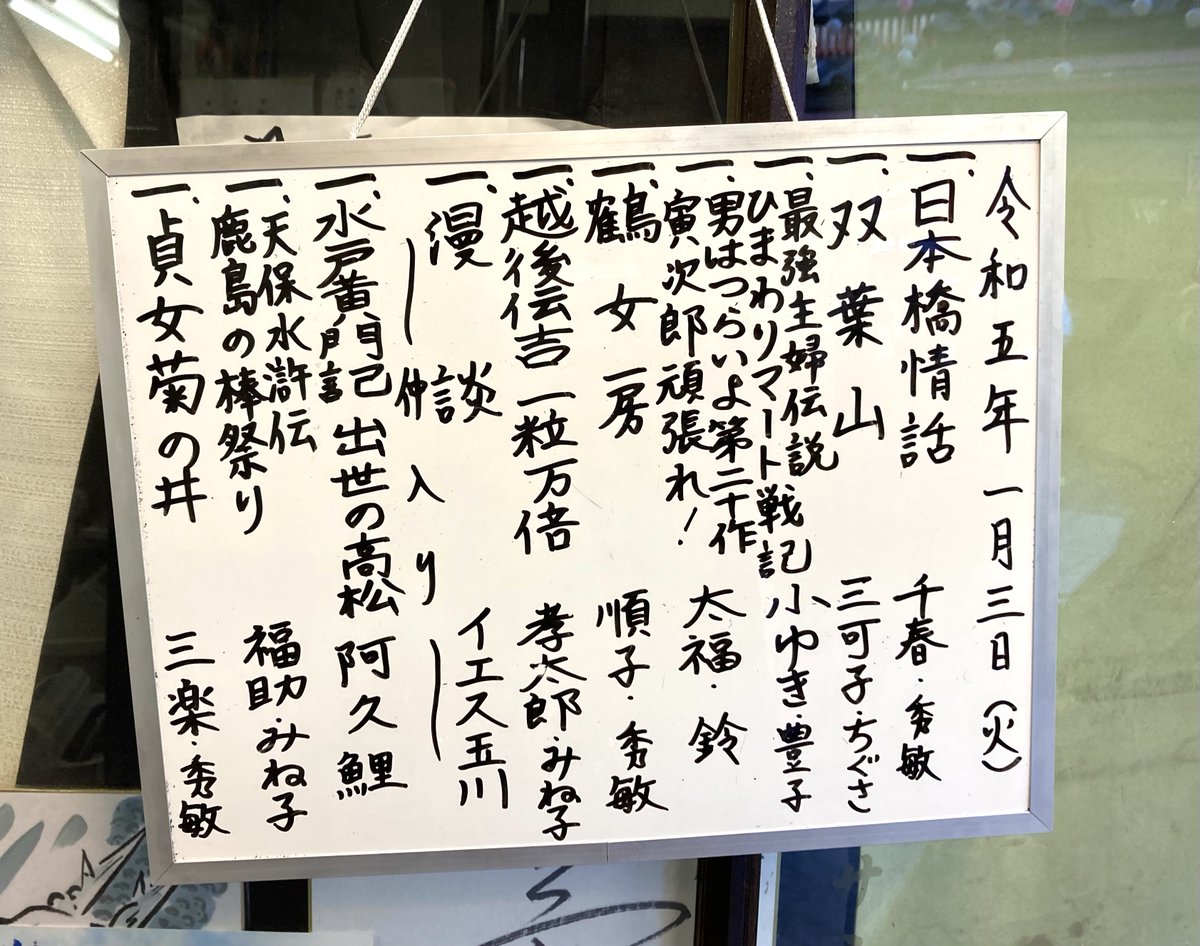 令和五年一月三日(火)
一、日本橋情話 千春・秀敏
一、双葉山 三可子・ちぐさ
一、最強主婦伝説
ひまわりマート戦記 小ゆき・豊子
一、男はつらいよ第二十作
寅次郎頑張れ! 太福・鈴
一、鶴女房 順子・秀敏
一、越後伝吉 一粒万倍 孝太郎・みね子
一、漫談 イエス玉川
― 仲入り ―
一、水戸黄門記 出世の高松 阿久鯉
一、天保水滸伝
鹿島の棒祭り 福助・みね子
一、貞女菊の井 三楽・秀敏